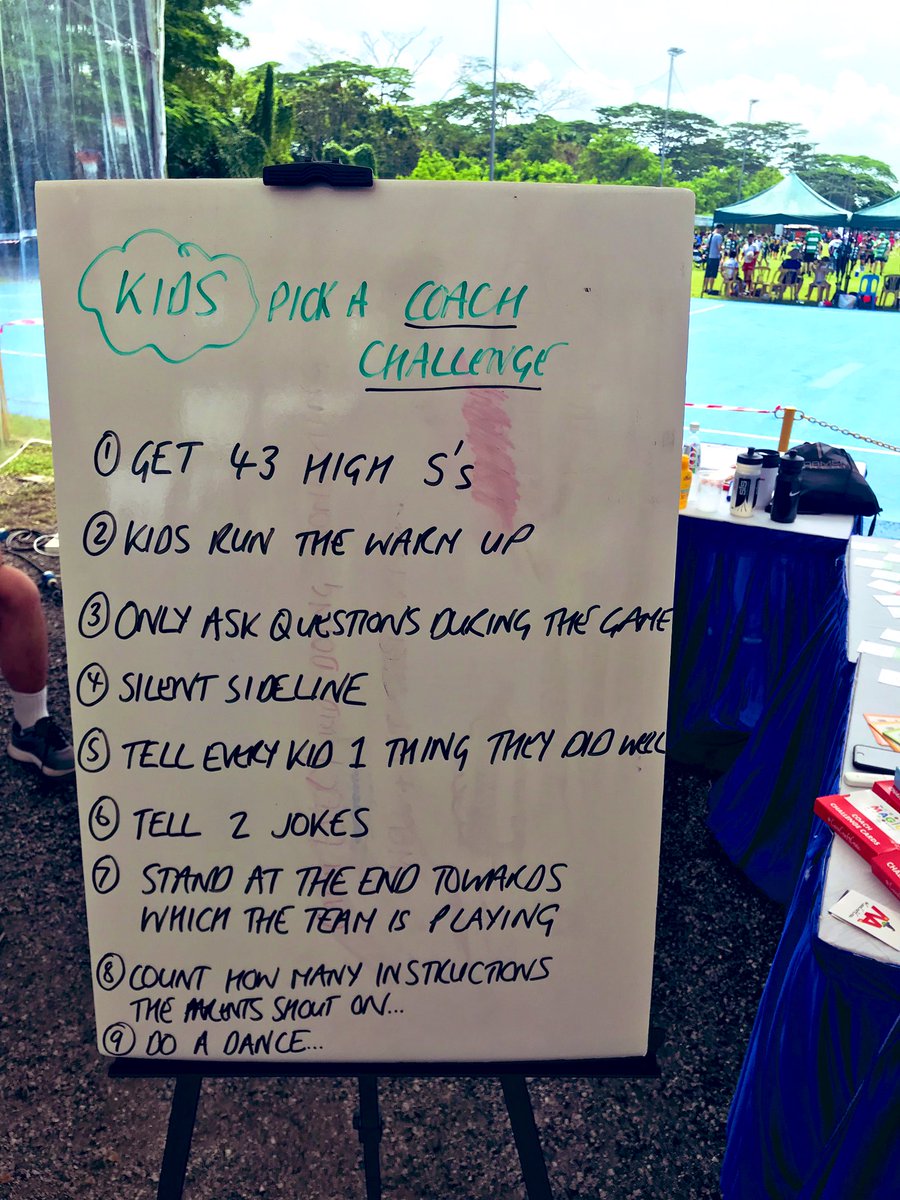 KIDS PICK A COACH
CHALLENGE
① GET 43 HIGH 5's
② KIDS RUN THE WARM UP
③ ONLY ASK QUESTIONS DURING THE GAME
④ SILENT SIDELINE
⑤ TELL EVERY KID 1 THING THEY DID WELL
⑥ TELL 2 JOKES
⑦ STAND AT THE END TOWARDS
WHICH THE TEAM IS PLAYING
⑧ COUNT HOW MANY INSTRUCTIONS
THE PARENTS SHOUT ON...
⑨ DO A DANCE...
COACH
CHALLENGE CARDS